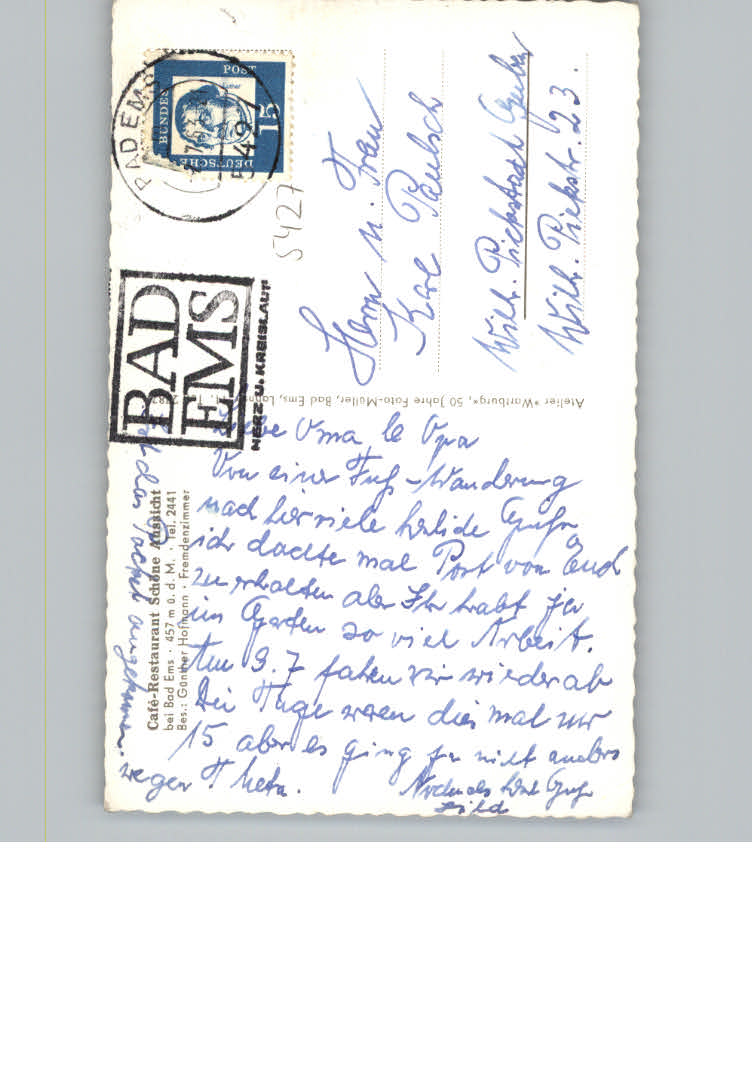 Café-Restaurant Schöne Aussicht
bei Bad Ems · 457 m ü. d. M. · Tel. 2441
Bes.: Günther Hofmann · Fremdenzimmer
Liebe Oma, lb Opa
Von einer Fuß-Wanderung
viele
ich dachte mal Post von Euch
zu erhalten aber Ihr habt ja
im Garten so viel Arbeit.
Am 9.7 fahren wir wieder ab
Die Tage waren dies mal nur
15 aber es ging ja nicht anders
wegen Meta.
Nochmals
angekommen
Atelier "Wartburg", 50 Jahre Foto-Müller, Bad Ems
BAD EMS
5427
DEUTSCHE
BUNDES
POST
15
BAD
EMS
HERZ U. KREISLAUF
5427
Herrn u. Frau
Karl Paulsch
Wilh. Pieckstadt Guben
Wilh. Pieckstr. 23.